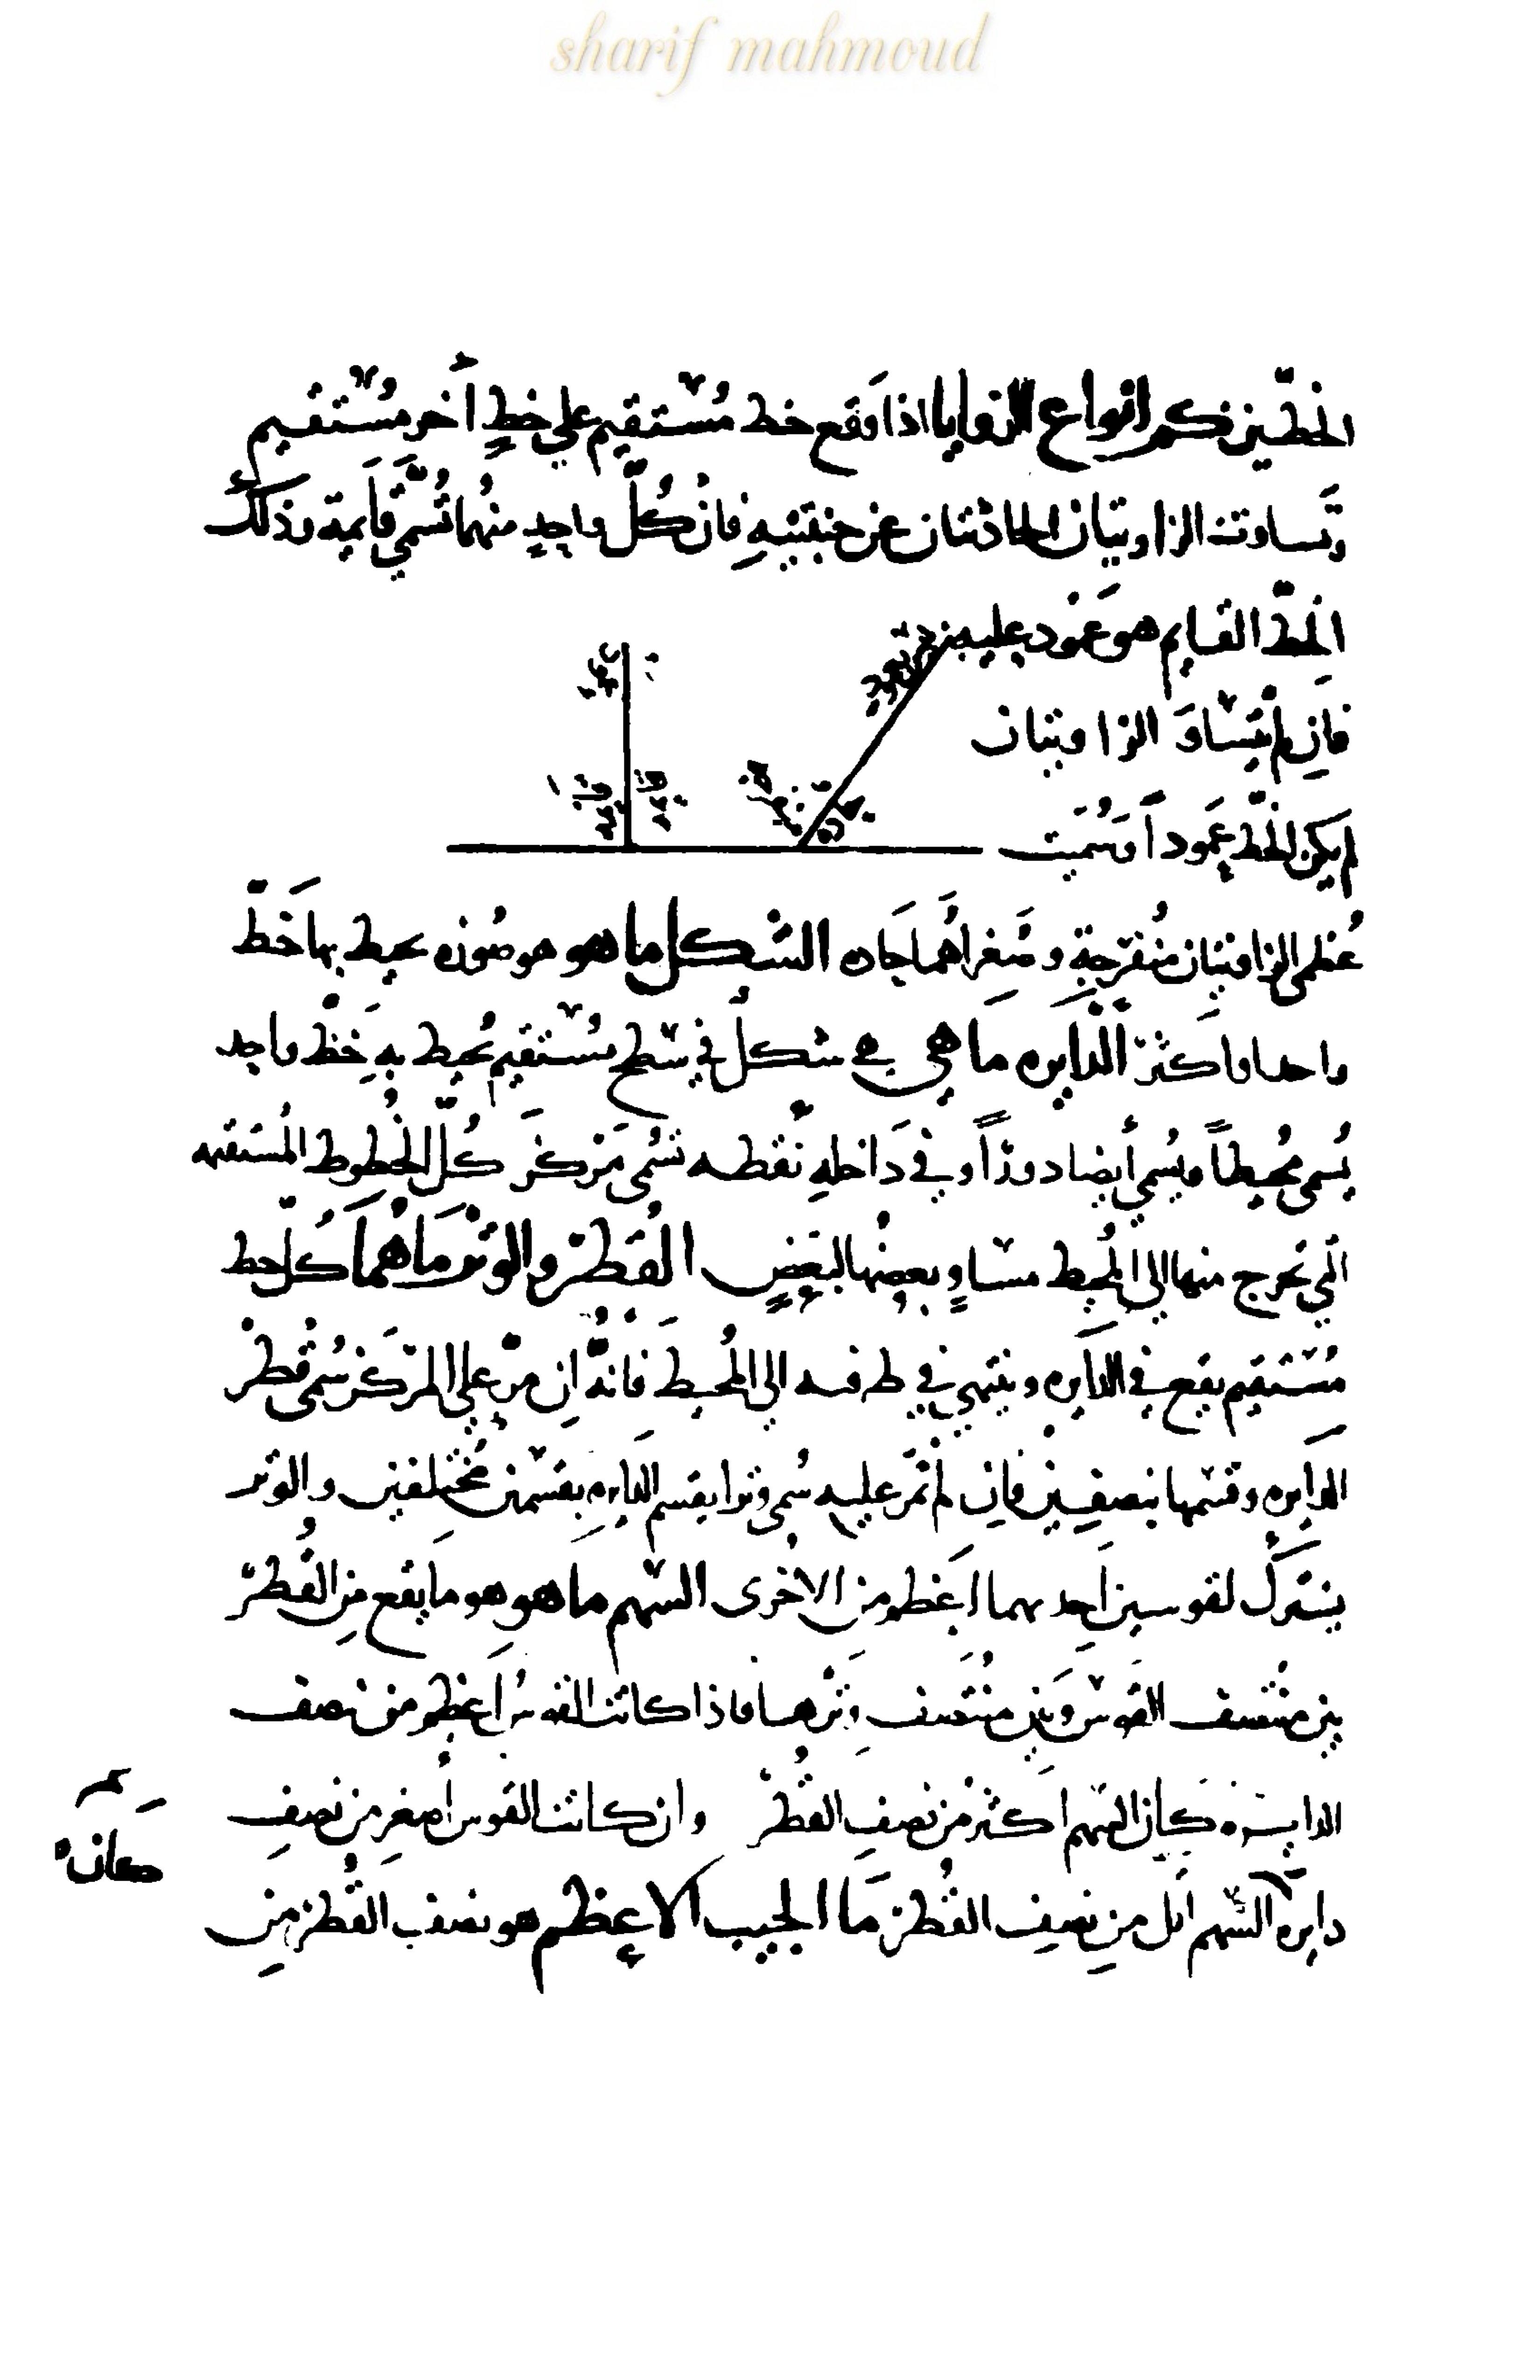 sharif mahmoud
الخطّين كم انواع الزوايا اذا وَقع خط مُسْتقيم على خطٍ آخر مُسْتقيم
وتَساوت الزاويتان الحادثتان عن جنبتيهِ فان كُلّ واحدٍ منهُما تُسَمّى قَايمة وذلك
الخطّ القايم هو عَمود عليه
فان لم تَتساوَ الزاويتان
لم يكن الخطّ عَموداً وسُميت
عُظمى الزاويتان مُنفرجةٍ وصَغراهُما حَاده الشكل ما هو هو صُوره يحيط بها خَطّ
واحد او اكثر الدايره ما هي هي شكلٌ في سَطح مُسْتقيم يُحيط بهِ خَطّ واحِد
يُسمى مُحيطاً ويُسمى أيضا دوراً وفي دَاخلهِ نُقطه تسُمى مَركز كُلّ الخُطوط المُستقيمه
التي تَخرج منها الى المُحيط مسَاوٍ بعضُها لبَعضٍ القُطرْ والوتر مَا هُمَا كُلّ خط
مُسْتقيم يقع في الدايَره وينتهي في طرفيه الى المُحيط فانهُ ان مرّ على المركَز سُمى قُطرْ
الدايره وقسَمها بنصفين فان لم تمَرّ عليه سُمى وترا يقسم الدايره بقسْمين مُختلفين والوتر
يشترك لقوسين اَحِديهما اعَظم من الاخرى السَهم ما هو هو ما يقع مِن القُطرْ
بين مُنتصف القوَسْ وبَين مُنتَصف وَترها فاذا كانت القوسُ اَعظم من نصف
الدايرة كان السَهم اكثر من نصف القُطرْ وان كانت القوس أصغر من نصف
دايره السَهم اقل من نصِف القُطرْ مَا الجيب الاعظم هو نصف القُطر من